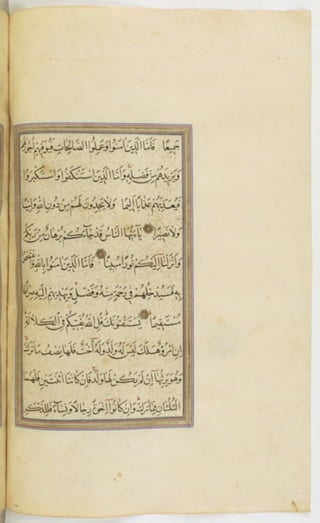 جَمِيعًا فَأَمَّا الَّذِينَ آمَنُوا وَعَمِلُوا الصَّالِحَاتِ فَيُوَفِّيهِمْ أُجُورَهُمْ
وَيَزِيدُهُمْ مِنْ فَضْلِهِ وَأَمَّا الَّذِينَ اسْتَنْكَفُوا وَاسْتَكْبَرُوا
فَيُعَذِّبُهُمْ عَذَابًا أَلِيمًا وَلَا يَجِدُونَ لَهُمْ مِنْ دُونِ اللَّهِ وَلِيًّا
وَلَا نَصِيرًا يَا أَيُّهَا النَّاسُ قَدْ جَاءَكُمْ بُرْهَانٌ مِنْ رَبِّكُمْ
وَأَنْزَلْنَا إِلَيْكُمْ نُورًا مُبِينًا فَأَمَّا الَّذِينَ آمَنُوا بِاللَّهِ وَاعْتَصَمُوا
بِهِ فَسَيُدْخِلُهُمْ فِي رَحْمَةٍ مِنْهُ وَفَضْلٍ وَيَهْدِيهِمْ إِلَيْهِ صِرَاطًا
مُسْتَقِيمًا يَسْتَفْتُونَكَ قُلِ اللَّهُ يُفْتِيكُمْ فِي الْكَلَالَةِ
إِنِ امْرُؤٌ هَلَكَ لَيْسَ لَهُ وَلَدٌ وَلَهُ أُخْتٌ فَلَهَا نِصْفُ مَا تَرَكَ
وَهُوَ يَرِثُهَا إِنْ لَمْ يَكُنْ لَهَا وَلَدٌ فَإِنْ كَانَتَا اثْنَتَيْنِ فَلَهُمَا
الثُّلُثَانِ مِمَّا تَرَكَ وَإِنْ كَانُوا إِخْوَةً رِجَالًا وَنِسَاءً فَلِلذَّكَرِ